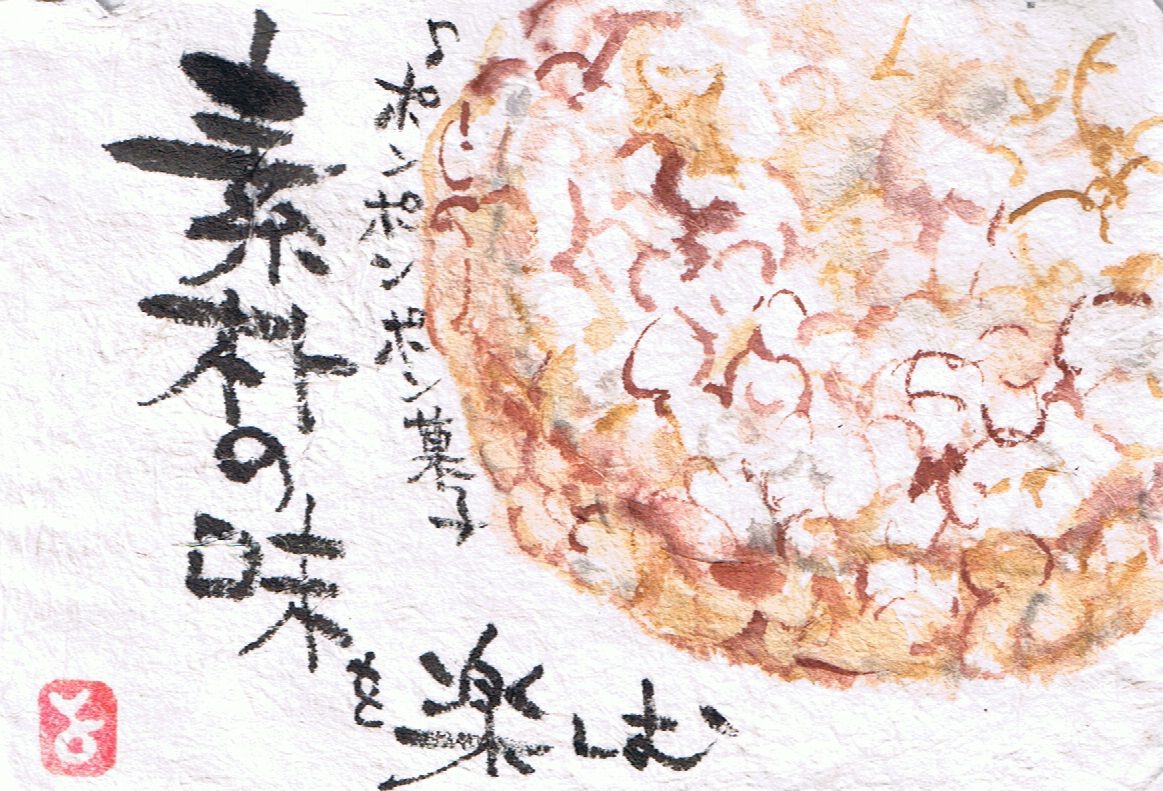 ポンポンポン菓子
素朴の味
を楽しむ